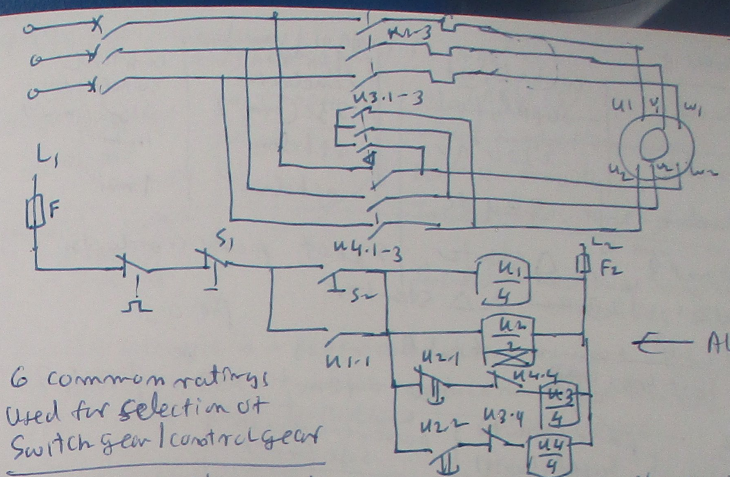 K1-3
K3.1-3
U1 V1 W1
U2 V2 W2
L1
F
S1
K4.1-3
L2
F2
S2
K1
4
K1-1
K2
2
AU
K2-1
K4-4
K3
4
K2-2
K3.4
K4
4
6 common ratings
used for selection of
Switch gear / control gear